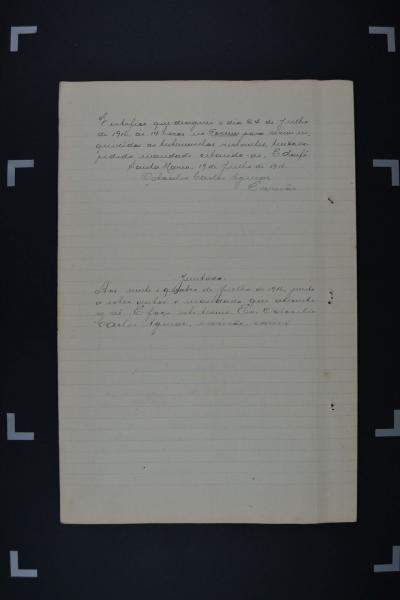 Certifico que designei o dia 24 de Julho
de 1916 ás 14 horas no Forum para serem in-
quiridas as testemunhas restantes, tendo ex-
pedido mandado citando-as. E dou fé
Santa Maria, 19 de Julho de 1916
Octacilio Carlos Aguiar
Escrivão
Juntada
Aos vinte e quatro de Julho de 1916, junto
a estes autos o mandado que adiante
se vê. E faço este termo. Eu Octacilio
Carlos Aguiar, escrivão,